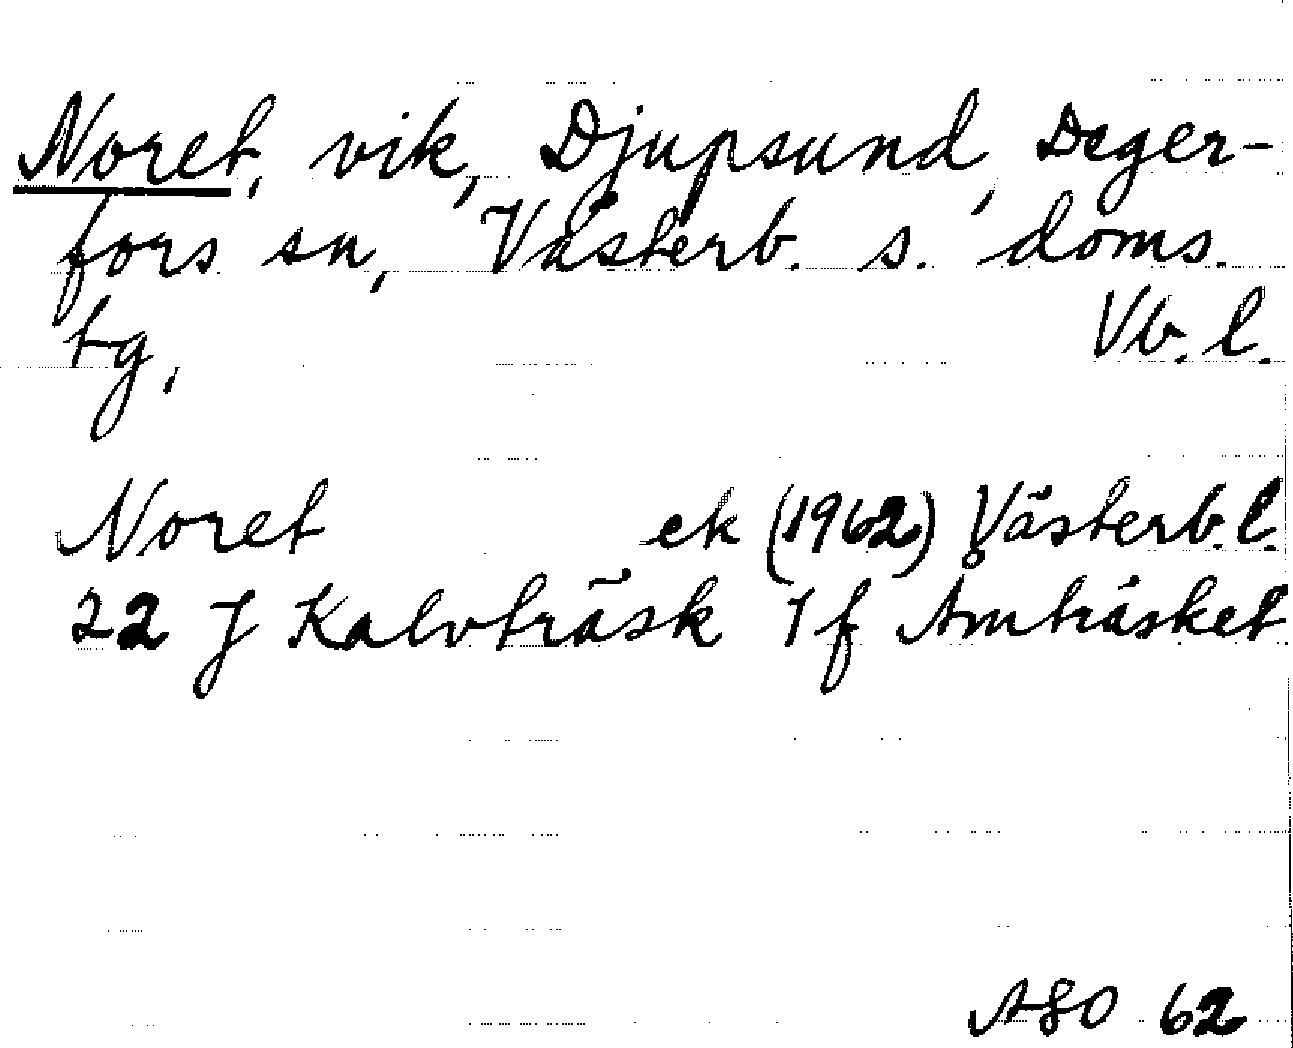 Noret, vik, Djupsund, Deger-
fors sn, Västerb. s. doms.
tg, Vb. l.
Noret ek (1962) Västerb. l.
22 J Kalvträsk 7 f Åmträsket
ASO 62